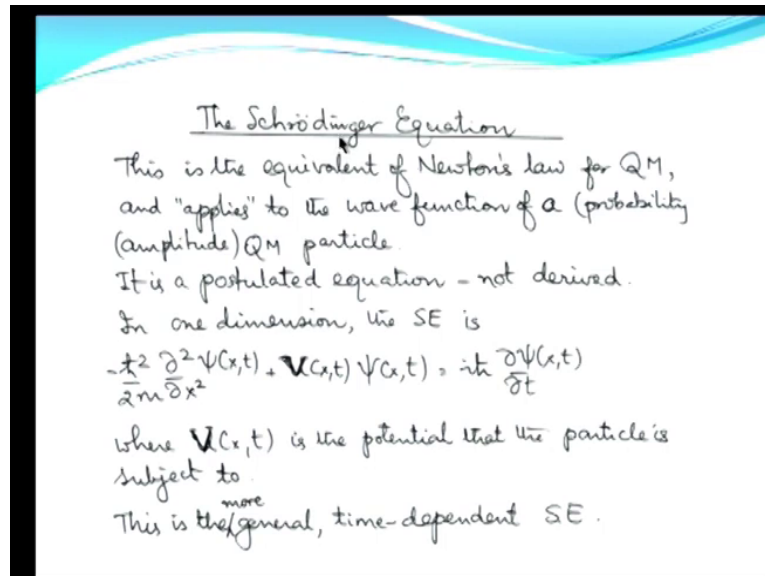 The Schrödinger Equation
This is the equivalent of Newton's law for QM,
and "applies" to the wave function of a (probability
(amplitude) QM particle.
It is a postulated equation - not derived.
In one dimension, the SE is
-ħ²/2m ∂²/∂x² Ψ(x,t) + V(x,t) Ψ(x,t) = iħ ∂Ψ(x,t)/∂t
where V(x,t) is the potential that the particle is
subject to.
This is the more general, time-dependent SE.